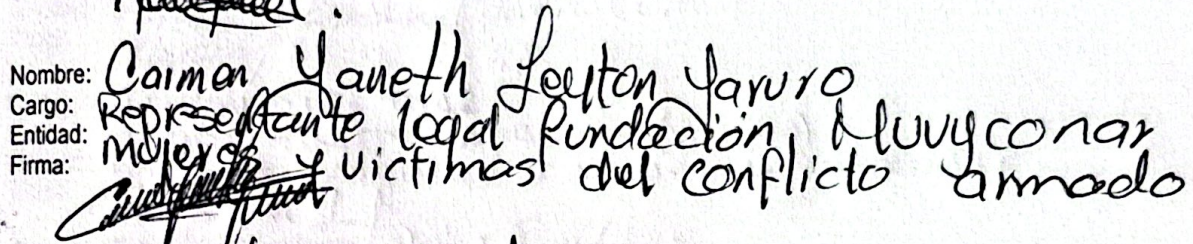 Nombre: Carmen Yaneth Leyton Yaruro
Cargo: Representante legal fundación Muvyconar
Entidad: Mujeres y victimas del conflicto armado
Firma: